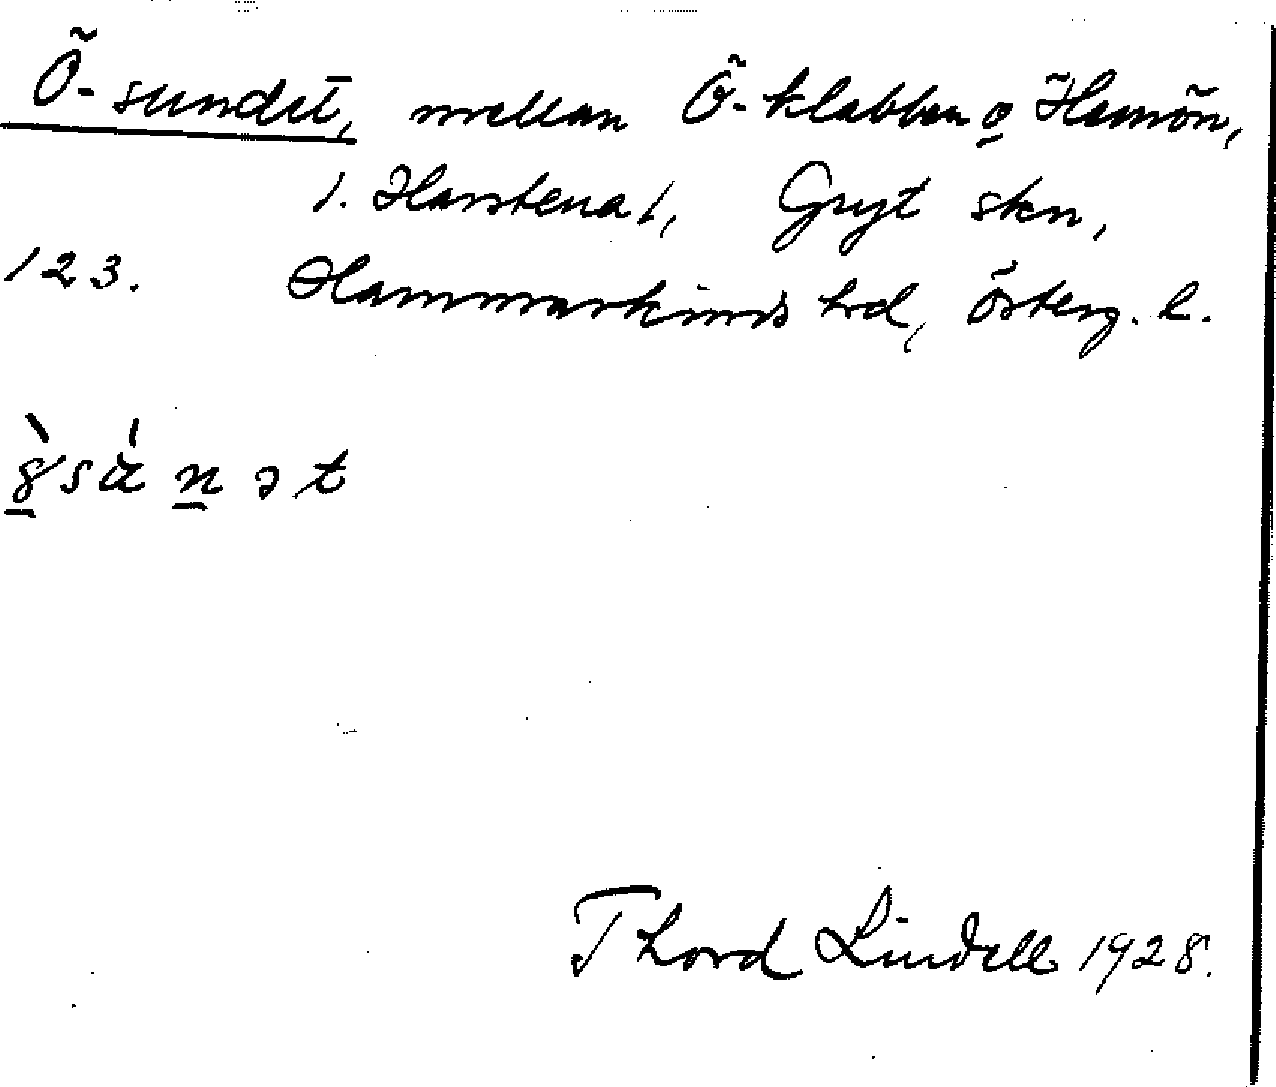 Ö-sundet, mellan Ö-klabben o Hamön,
1. Harstena 1, Gryt skn,
123. Hammarkinds hrd, Österg. l.
Thord Lindell 1928.